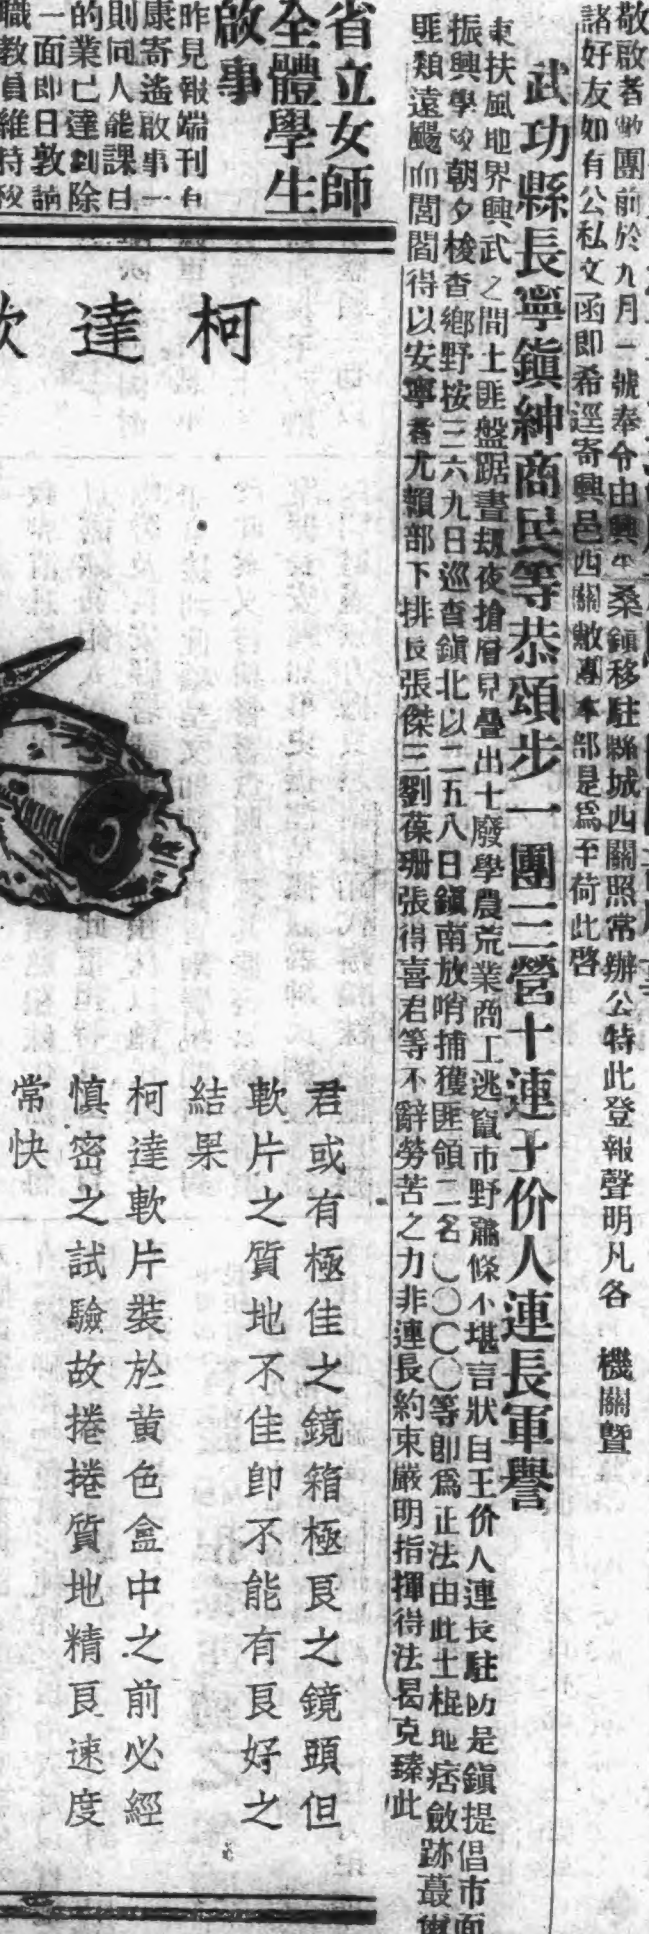 敬啟者敝團前於九月一號奉令由興平桑鎮移駐縣城西關照常辦公特此登報聲明凡各　機關暨
諸好友如有公私文函即希逕寄興邑西關敝團本部是為至荷此啓
武功縣長寧鎮紳商民等恭頌步一團三營十連王价人連長軍譽
東扶風地界興武之間土匪盤踞晝刼夜搶層見疊出士廢學農荒業商工逃竄市野蕭條不堪言狀自王价人連長駐防是鎮提倡市面
振興學校朝夕梭查鄉野按三六九日巡查鎮北以二五八日鎮南放哨捕獲匪領二名〇〇〇〇等即為正法由此土棍地痞斂跡蕞爾
匪類遠颺而閭閻得以安寧者尤賴部下排長張傑三劉葆珊張得喜君等不辭勞苦之力非連長約束嚴明指揮得法曷克臻此
省立女師
全體學生
啟事
昨見報端刊有
康寄遙啟事一
則同人能課日
的業已達到除
一面即日敦請
職教員維持校
柯達軟
君或有極佳之鏡箱極良之鏡頭但
軟片之質地不佳即不能有良好之
結果
柯達軟片裝於黄色盒中之前必經
慎密之試驗故捲捲質地精良速度
常快